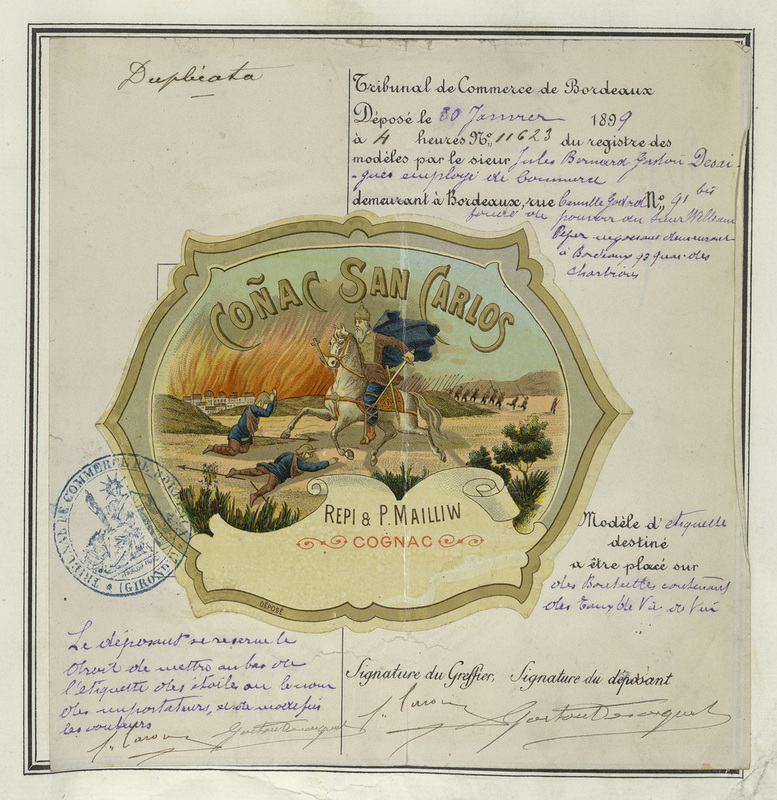 Duplicata
Tribunal de Commerce de Bordeaux
Déposé le 30 Janvier 1899
à 4 heures No. 11623 du registre des
modèles par le sieur Jules Bernard Gaston Desai-
-gues employé de Commerce
demeurant à Bordeaux, rue Camille Godard No. 91 bis
fondé de pouvoir du Sieur William
negociant demeurant
à Bordeaux 93 quai des
Chartrons
COÑAC SAN CARLOS
REPI & P. MAILLIW
COGNAC
DÉPOSÉ
TRIBUNAL DE COMMERCE DE BORDEAUX
(GIRONDE)
Modèle d'étiquette
destiné
a être placé sur
des Bouteilles contenant
des Eaux de Vie de Vin
Le déposant se reserve le
droit de mettre au bas de
l'étiquette des étoiles ou le nom
des importateurs, et de modifier
les couleurs
Signature du Greffier, Signature du déposant